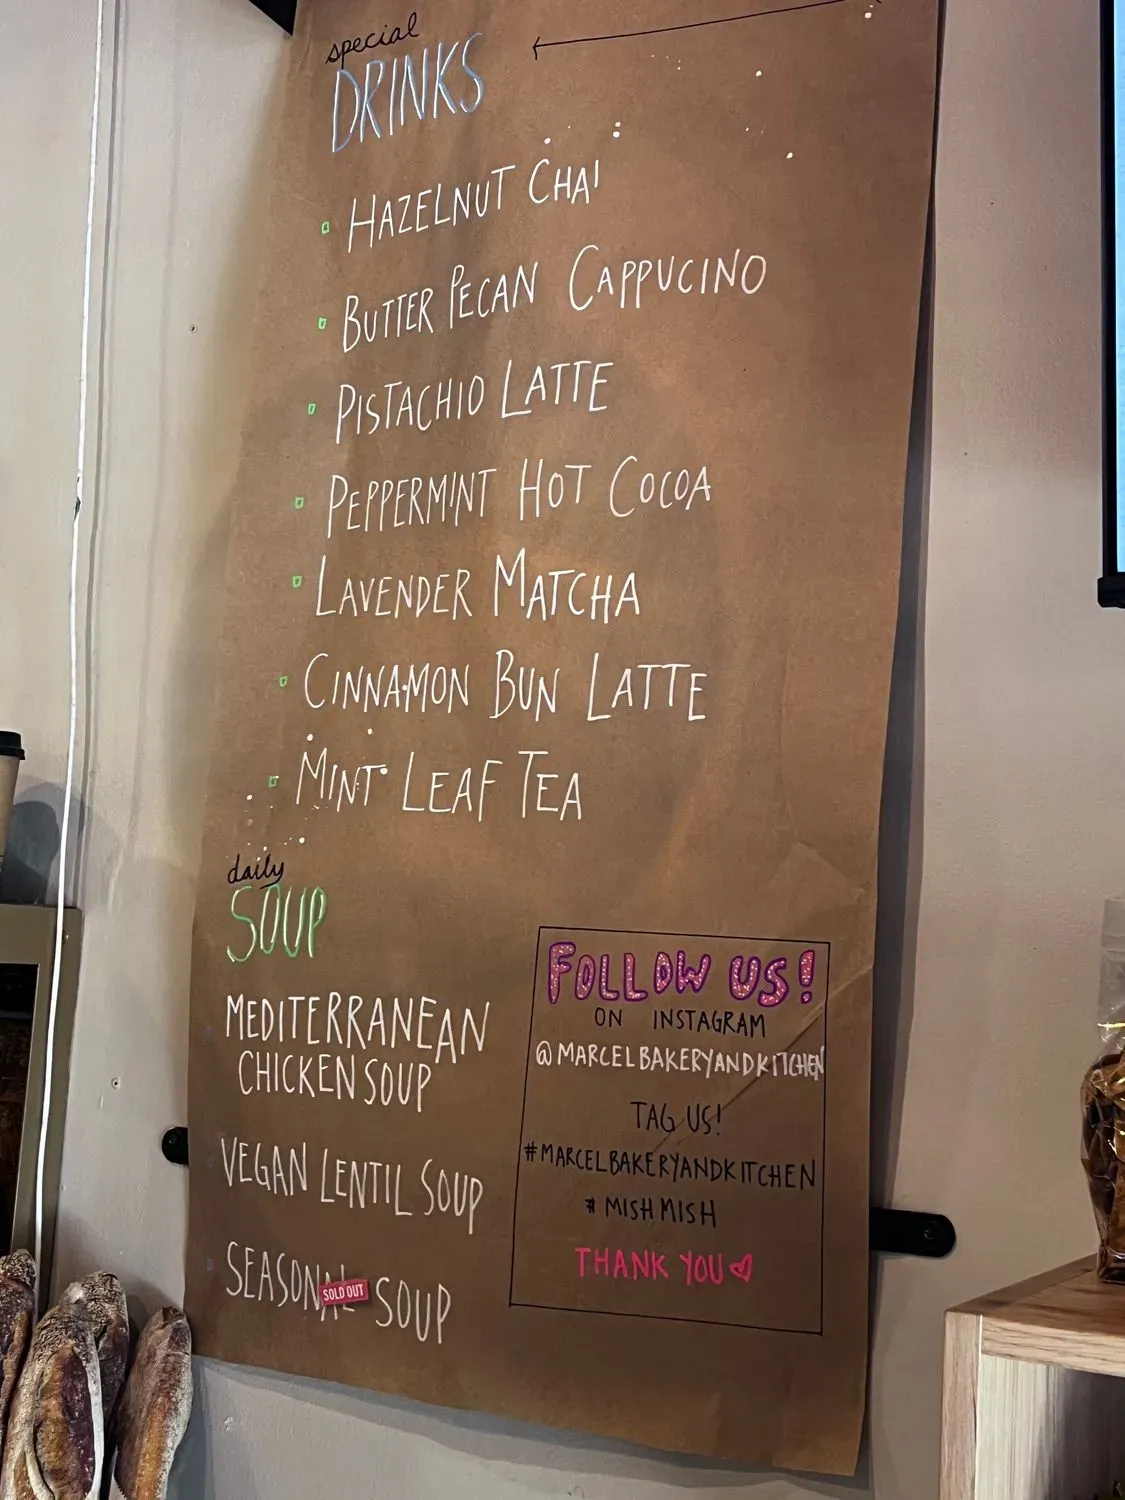 special
DRINKS
HAZELNUT CHAI
BUTTER PECAN CAPPUCINO
PISTACHIO LATTE
PEPPERMINT HOT COCOA
LAVENDER MATCHA
CINNAMON BUN LATTE
MINT LEAF TEA
daily
SOUP
MEDITERRANEAN
CHICKEN SOUP
VEGAN LENTIL SOUP
SEASONAL SOUP
SOLD OUT
FOLLOW US!
ON INSTAGRAM
@MARCELBAKERYANDKITCHEN
TAG US!
#MARCELBAKERYANDKITCHEN
# MISHMISH
THANK YOU ♡